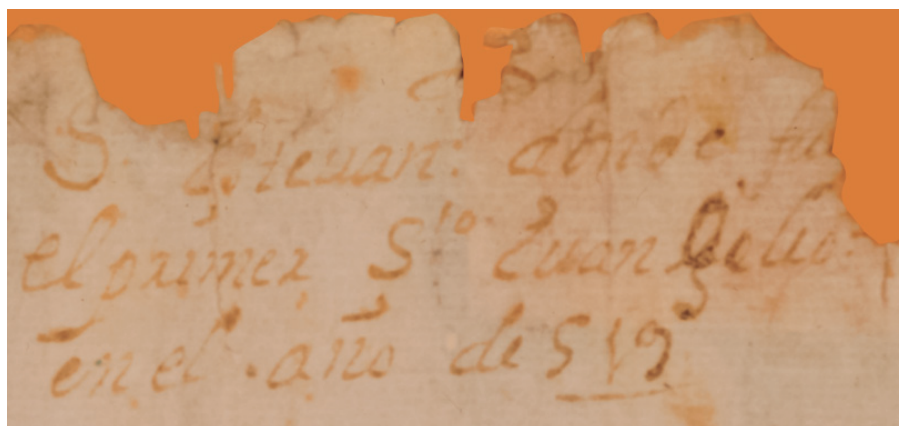 S. Esteuan: donde fu
el primer S^to. Euangelio.
en el año de 519